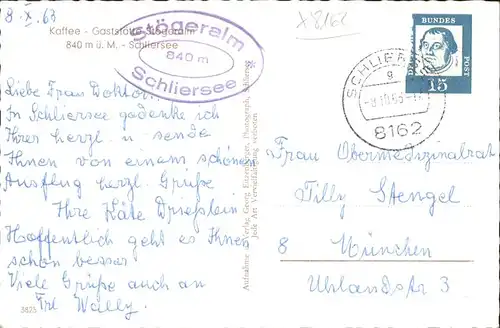 8.X.63
x 8162
Kaffee - Gaststätte Stögeralm
840 m ü. M. - Schliersee
Stögeralm
840 m
Schliersee
DEUTSCHE
BUNDES
POST
15
SCHLIER
g
8162
Liebe Frau Doktor!
In Schliersee gedenke ich
Ihrer herzl. u. sende
Ihnen von einem schönen
Ausflug herzl. Grüße
Ihre Käte Driepstein
Hoffentlich geht es Ihnen
schon besser
Viele Grüße auch an
Frl Wally.
Frau Obermedizinalrat
Tilly Stengel
8 München
Uhlandstr 3
Aufnahme u. Verlag Georg Eisenrieger, Photograph, Schliersee
Jede Art Vervielfältigung verboten
3825